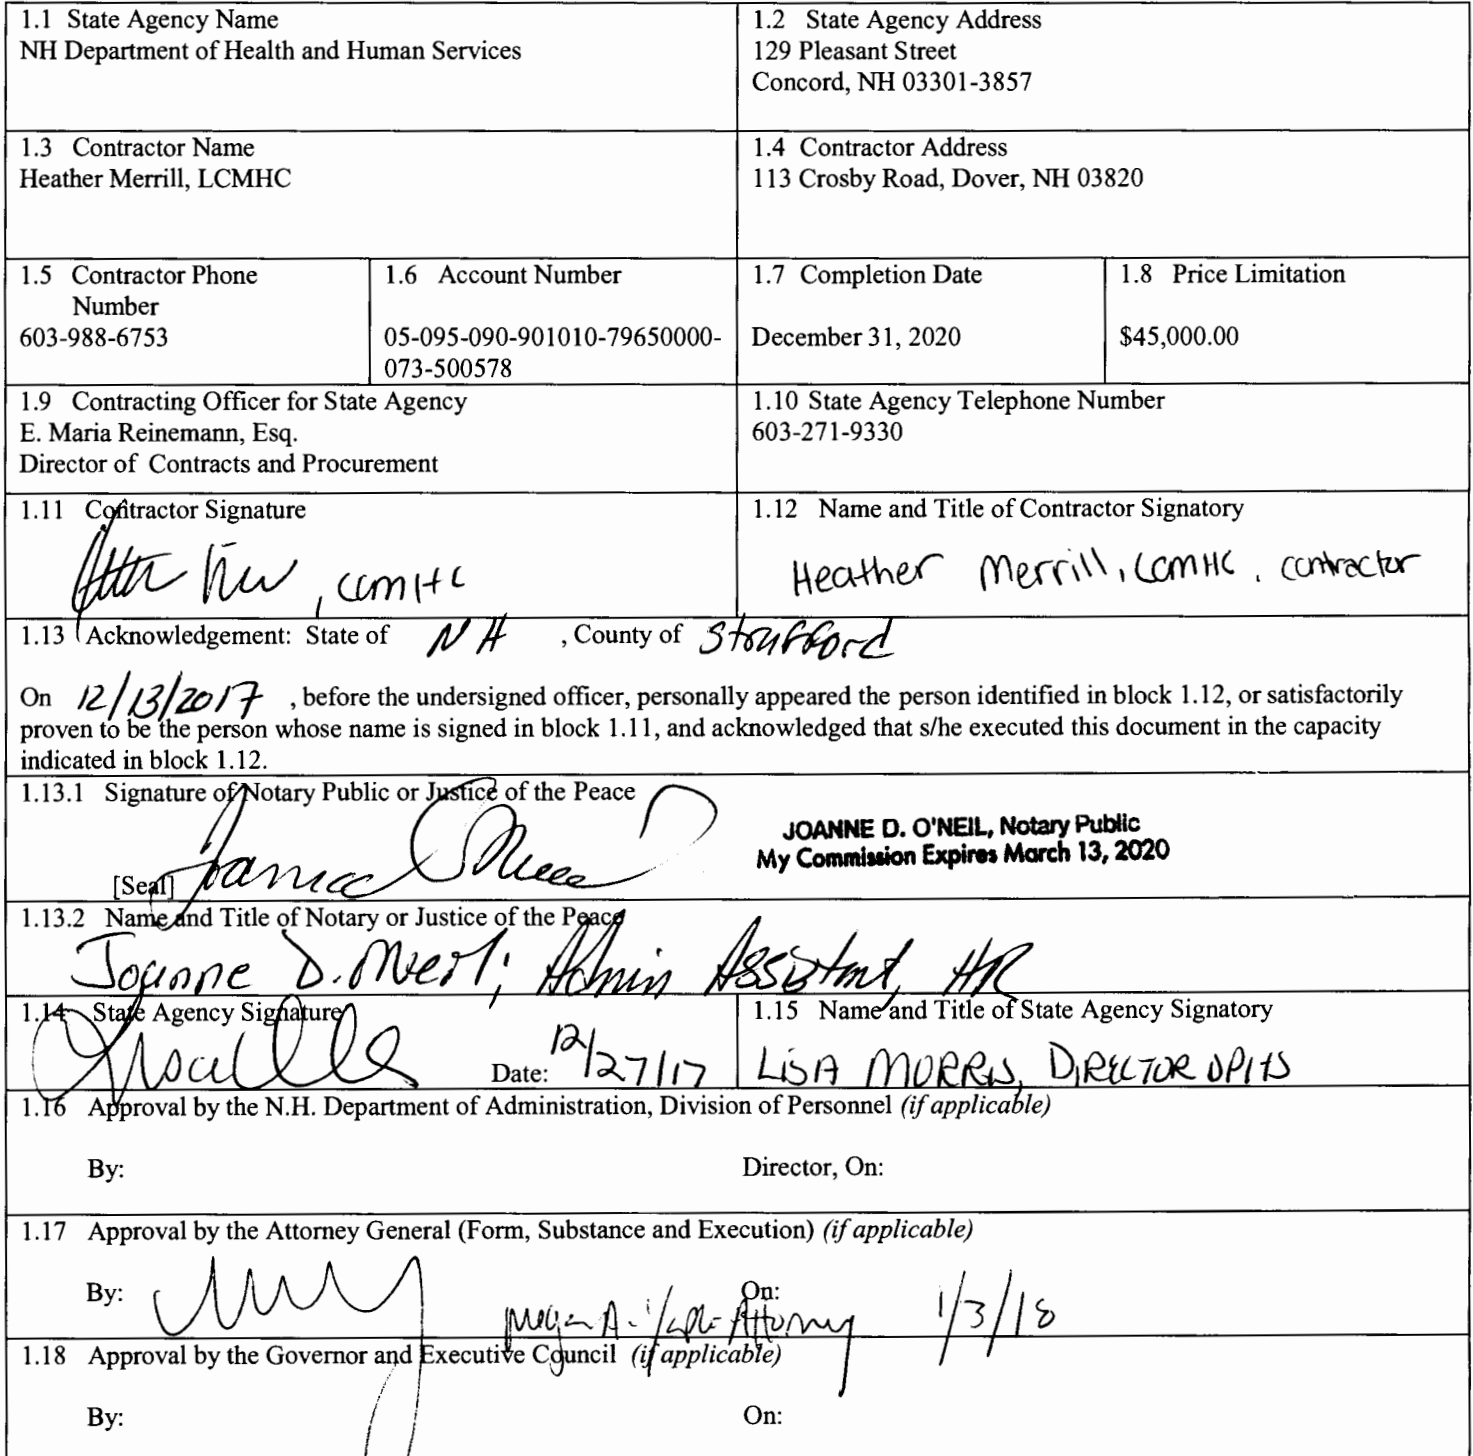 1.1 State Agency Name
NH Department of Health and Human Services
1.2 State Agency Address
129 Pleasant Street
Concord, NH 03301-3857
1.3 Contractor Name
Heather Merrill, LCMHC
1.4 Contractor Address
113 Crosby Road, Dover, NH 03820
1.5 Contractor Phone
Number
603-988-6753
1.6 Account Number
05-095-090-901010-79650000-
073-500578
1.7 Completion Date
December 31, 2020
1.8 Price Limitation
$45,000.00
1.9 Contracting Officer for State Agency
E. Maria Reinemann, Esq.
Director of Contracts and Procurement
1.10 State Agency Telephone Number
603-271-9330
1.11 Contractor Signature
, LCMHC
1.12 Name and Title of Contractor Signatory
Heather Merrill, LCMHC, contractor
1.13 Acknowledgement: State of NH , County of Strafford
On 12/13/2017 , before the undersigned officer, personally appeared the person identified in block 1.12, or satisfactorily
proven to be the person whose name is signed in block 1.11, and acknowledged that s/he executed this document in the capacity
indicated in block 1.12.
1.13.1 Signature of Notary Public or Justice of the Peace
JOANNE D. O'NEIL, Notary Public
My Commission Expires March 13, 2020
[Seal]
1.13.2 Name and Title of Notary or Justice of the Peace
Joanne D. O'Neil; Admin Assistant, HR
1.14 State Agency Signature
Date: 12/27/17
1.15 Name and Title of State Agency Signatory
LISA MORRIS, DIRECTOR DPHS
1.16 Approval by the N.H. Department of Administration, Division of Personnel (if applicable)
By: Director, On:
1.17 Approval by the Attorney General (Form, Substance and Execution) (if applicable)
By: On:
Megan A. Attorney 1/3/18
1.18 Approval by the Governor and Executive Council (if applicable)
By: On: